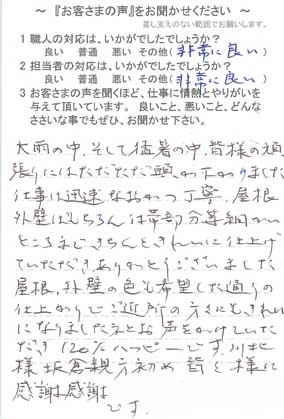 ～『お客さまの声』をお聞かせください～
差し支えのない範囲でお願いします。
1 職人の対応は、いかがでしたでしょうか？
良い　普通　悪い　その他(非常に良い)
2 担当者の対応は、いかがでしたでしょうか？
良い　普通　悪い　その他(非常に良い)
3 お客さまの声を聞くほど、仕事に情熱とやりがいを
与えて頂いています。 良いこと、悪いこと、どんな
ささいな事でもぜひ、お聞かせ下さい。
大雨の中、そして猛暑の中、皆様の頑
張りにはただただ頭が下がりました
仕事は迅速なおかつ丁寧、屋根
外壁はもちろんは帯部分等細かい
ところまできちんときれいに仕上げ
ていただきありがとうございました
屋根、外壁の色も希望した通りの
仕上がりでご近所の方々にもきれい
になりましたネとお声をかけていた
だき120%ハッピーです。川北
様坂倉親方初め皆々様に
感謝感謝
です.